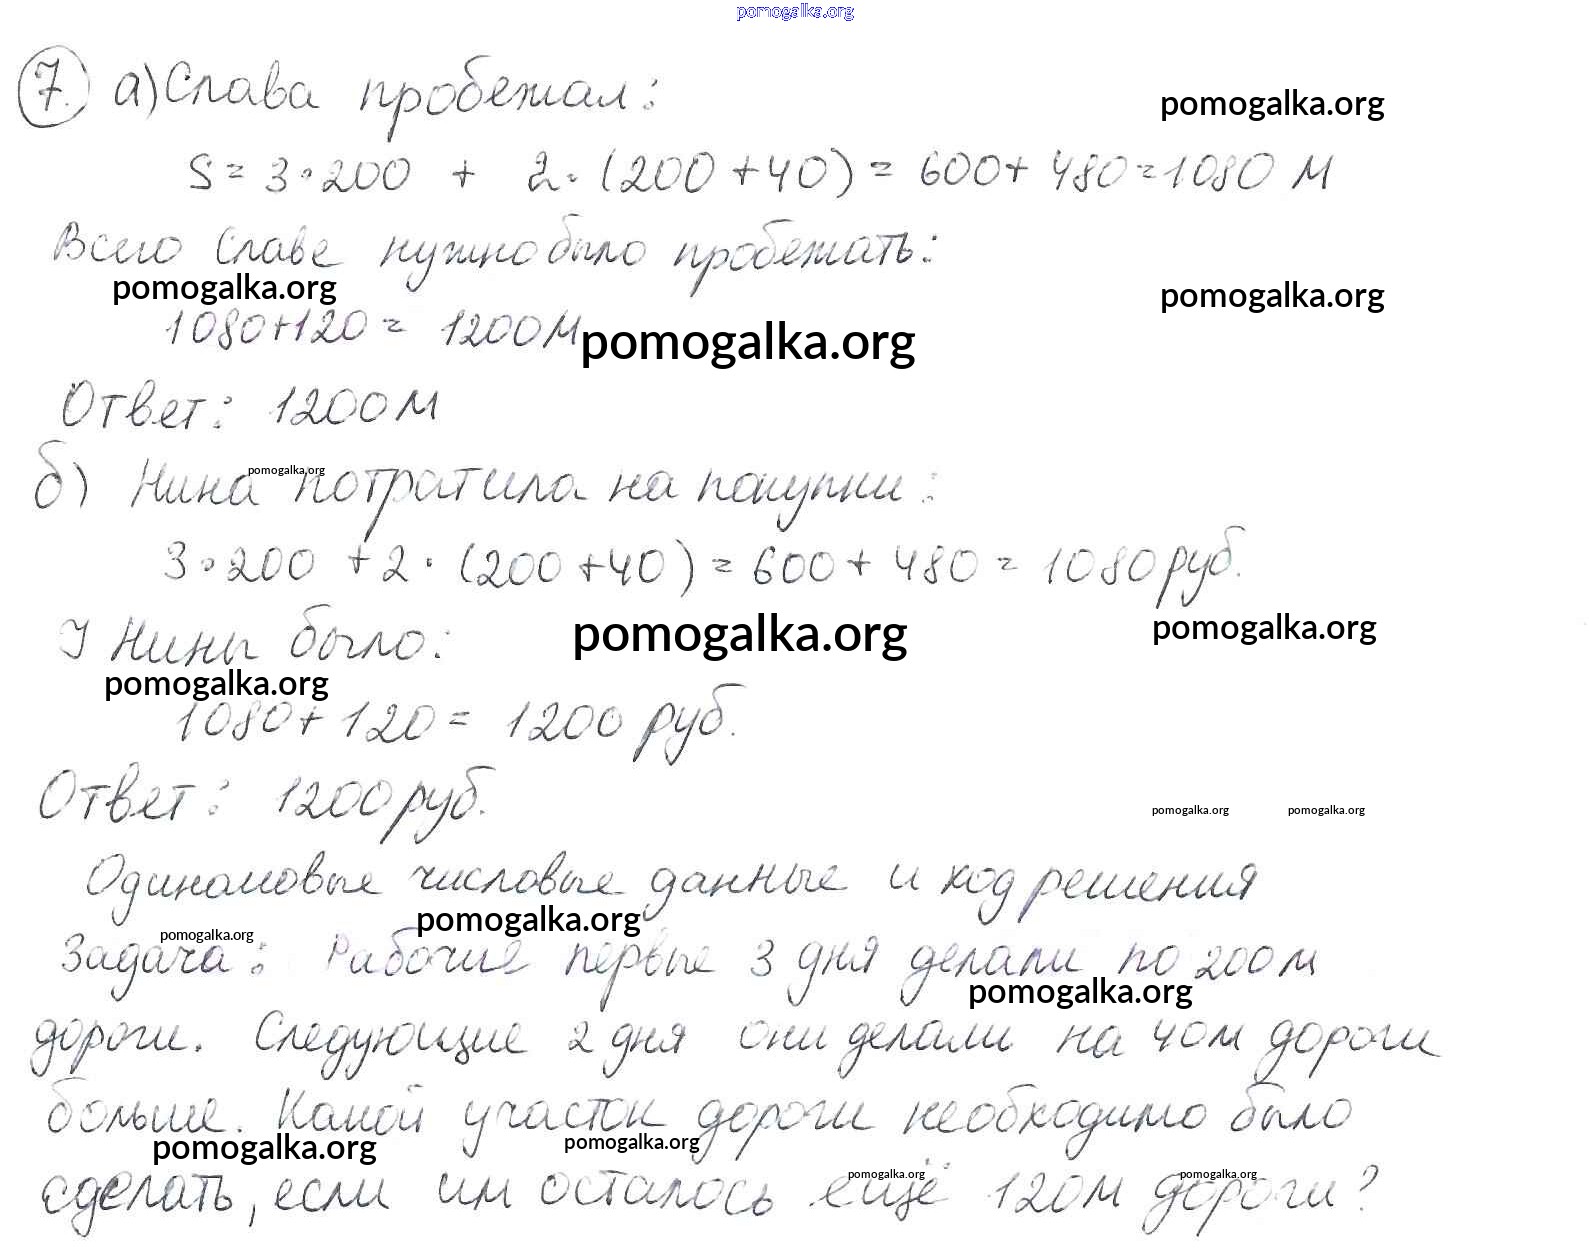 pomogalka.org
7. а) Слава пробежал:
pomogalka.org
S = 3•200 + 2•(200+40) = 600+480=1080 м
Всего Славе нужно было пробежать:
pomogalka.org
pomogalka.org
1080+120 = 1200м
pomogalka.org
Ответ: 1200м
б) Нина потратила на покупки:
pomogalka.org
3•200 +2•(200+40) = 600+480 = 1080 руб.
У Нины было:
pomogalka.org
pomogalka.org
pomogalka.org
1080+120 = 1200 руб.
Ответ: 1200 руб.
pomogalka.org
pomogalka.org
Одинаковые числовые данные и ход решения
pomogalka.org
pomogalka.org
Задача: Рабочие первые 3 дня делали по 200м
pomogalka.org
дороги. Следующие 2 дня они делали на 40м дороги
больше. Какой участок дороги необходимо было
pomogalka.org
pomogalka.org
сделать, если им осталось ещё 120м дороги?
pomogalka.org
pomogalka.org